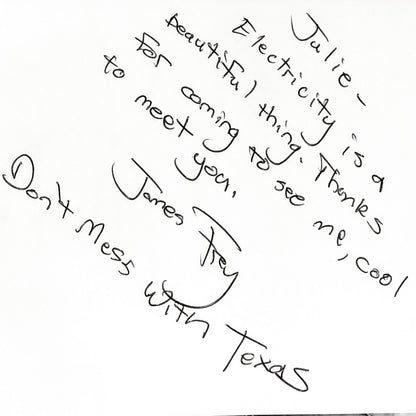 Julie-
Electricity is a
beautiful thing. Thanks
for coming to see me, cool
to meet you.
James Frey
Don't Mess With Texas